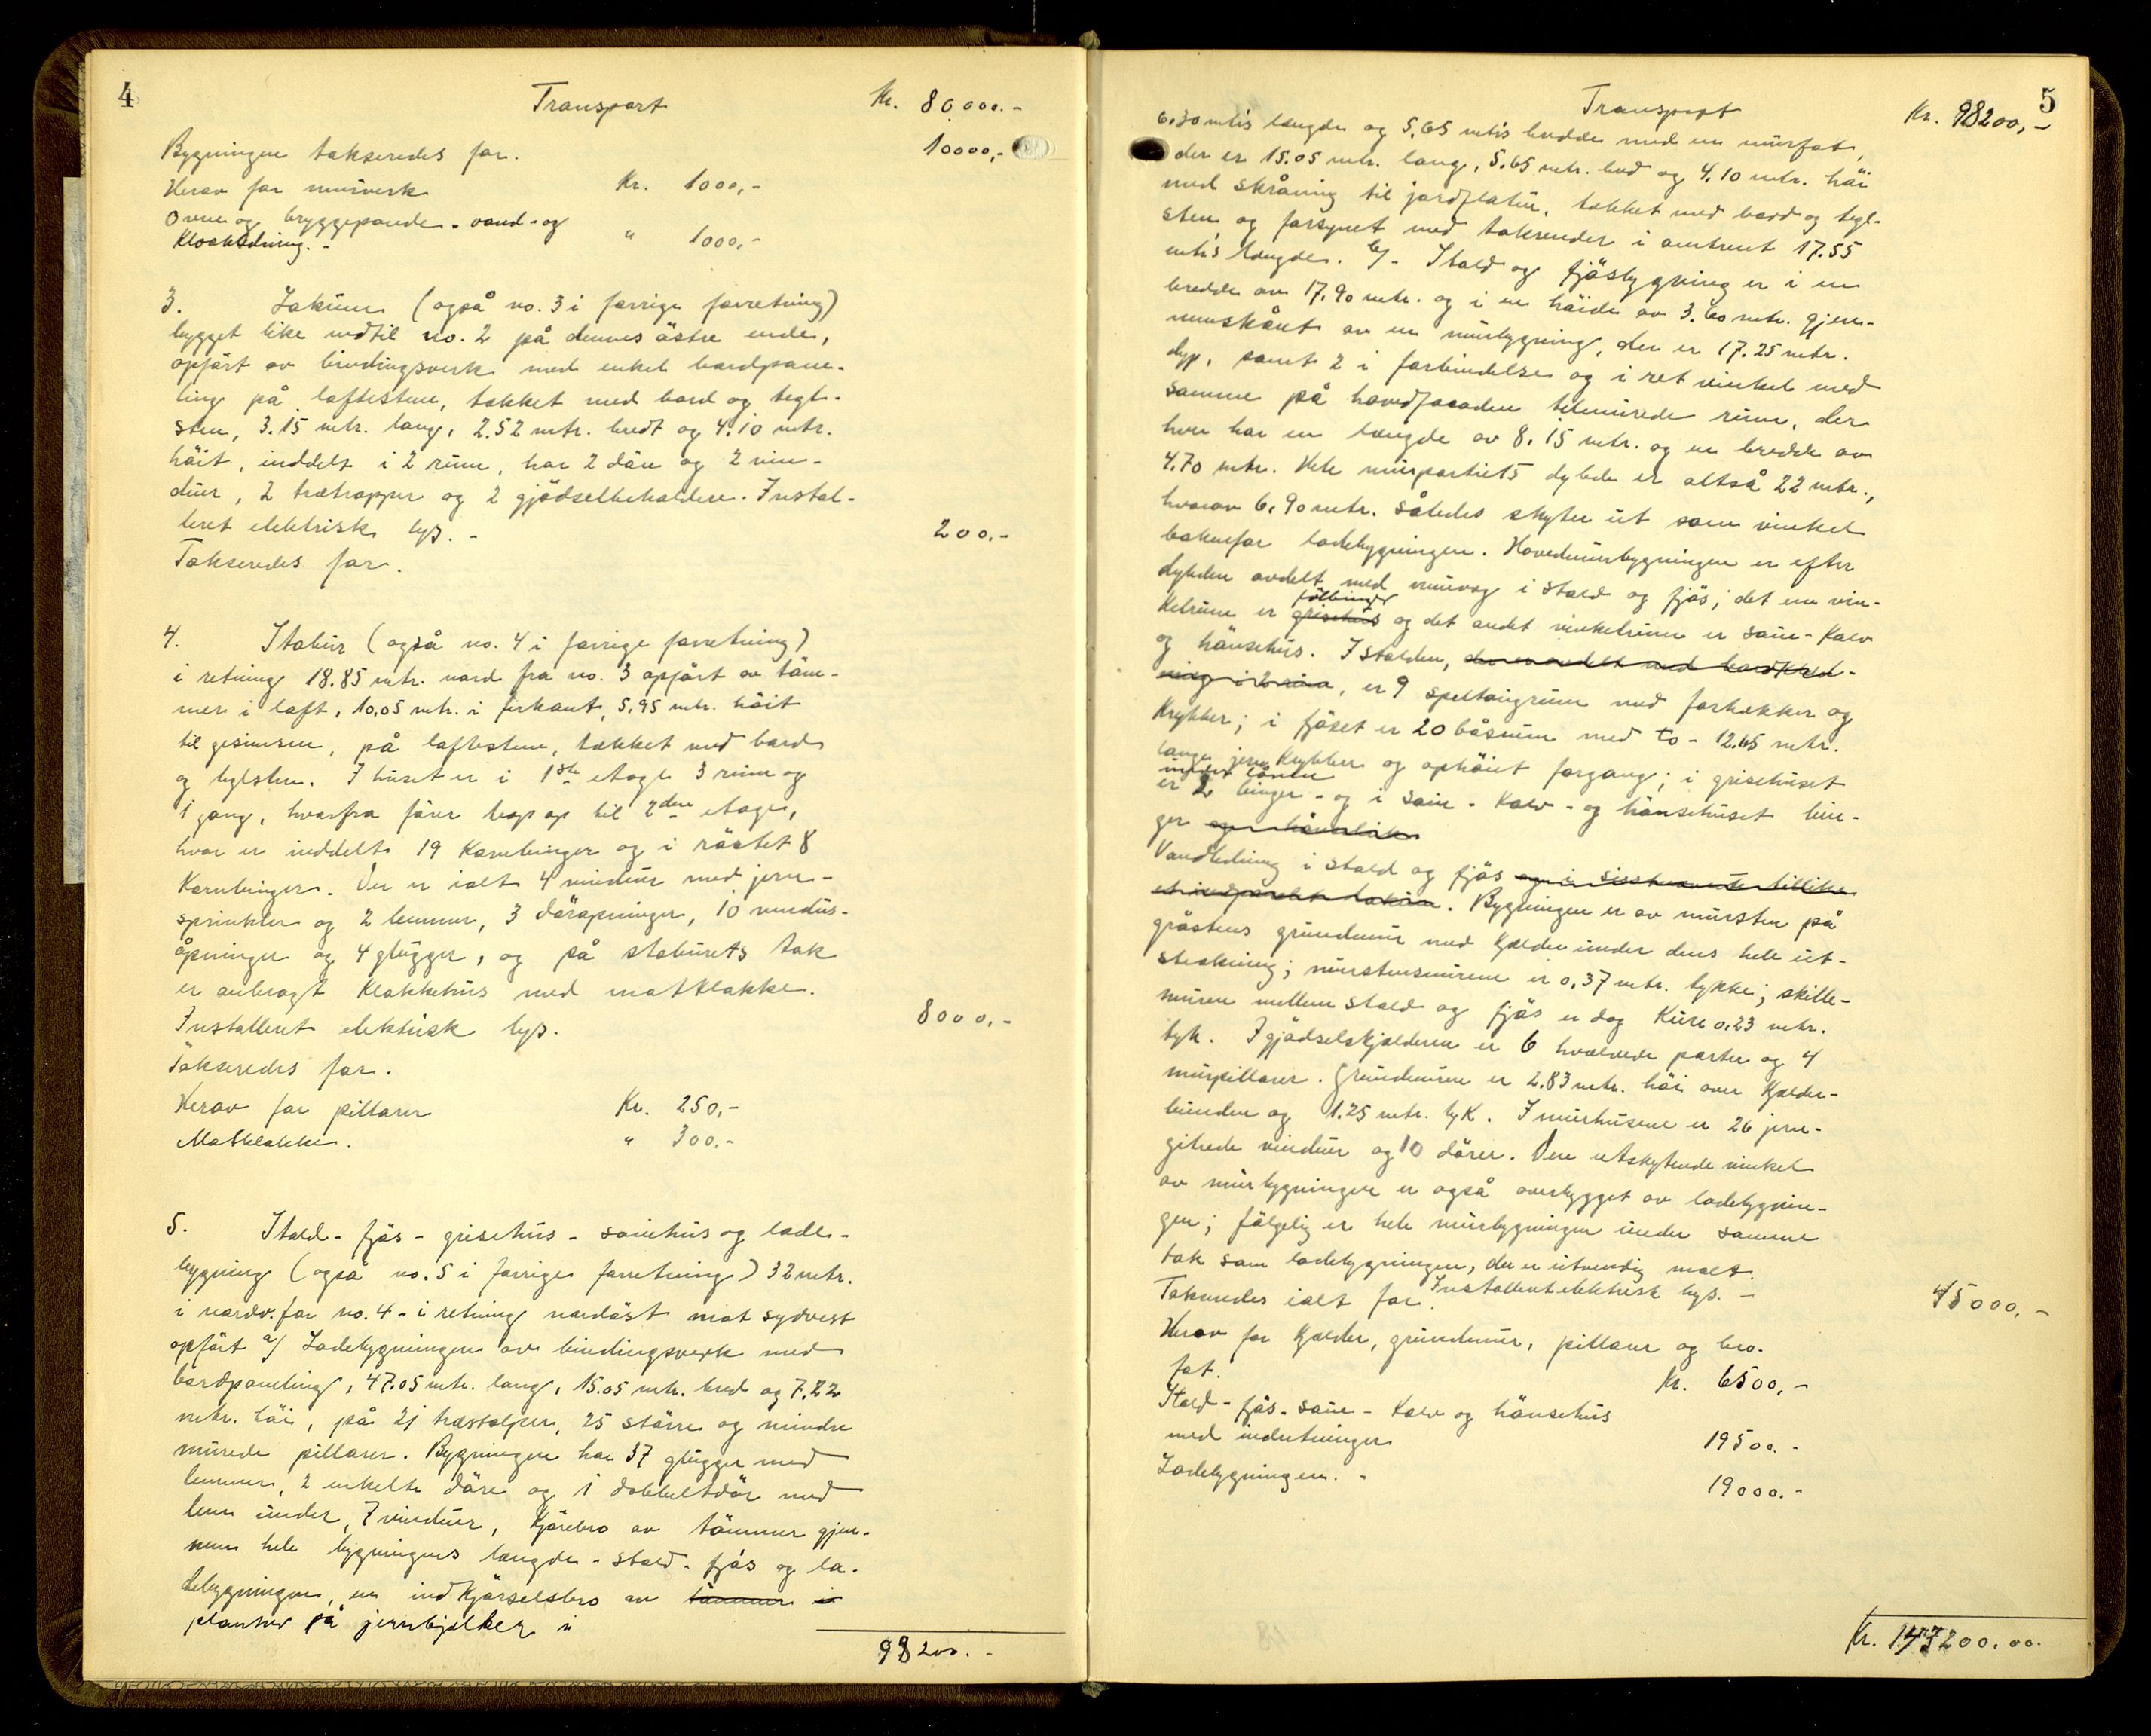 4
Transport Kr. 80000.-
Bygningen takseredes for. 10000,-
Herav for murverk Kr. 1000,-
Ovne og bryggepande - vand- og
Kloakledning. - " 1000,-
3. Lokum (også no. 3 i forrige forretning)
bygget like indtil no. 2 på dennes östre ende,
opfört av bindingsverk med enkel bordpane-
ling på loftestene, tækket med bord og tegl-
sten, 3.15 mtr. lang, 2.52 mtr. bredt og 4.10 mtr.
höit, inddelt i 2 rum, har 2 döre og 2 vin-
duer, 2 trætrapper og 2 gjödselbeholdere. Instal-
leret elektrisk lys. -
Takseredes for. 200.-
4. Stabur (også no. 4 i forrige forretning)
i retning 18.85 mtr. nord fra no. 3 opfört av töm-
mer i loft, 10,05 mtr. i firkant, 5,95 mtr. höit
til gesimsen, på loftestene, tækket med bord
og teglsten. I huset er i 1ste etage 3 rum og
1 gang, hvorfra förer trap op til 2den etage,
hvor er inddelt 19 Kornbinger og i röstet 8
Kornbinger. Der er ialt 4 vinduer med jern-
sprinkler og 2 lemmer, 3 döråpninger, 10 vindus-
åpninger og 4 glugger, og på staburets tak
er anbragt Klokkehus med matklokke.
Installeret elektrisk lys.
Takseredes for. 8000,-
Herav for pillarer Kr. 250,-
Matklokke. " 300.-
5. Stald - fjös - grisehus - sauehus og lade-
bygning (også no. 5 i forrige forretning) 32 mtr.
i nordv. for no. 4 - i retning nordöst mot sydvest
opfört a/ Ladebygningen av bindingsverk med
bordpaneling, 47.05 mtr. lang, 15.05 mtr. bred og 7.22
mtr. höi, på 21 træstolper, 25 större og mindre
murede pillarer. Bygningen har 37 glugger med
lemmer, 2 enkelte döre og 1 dobbeltdör med
lem under, 7 vinduer, Kjörebro av tömmer gjen-
nem hele bygningens længde - stald - fjös og la-
debygningen, en indkjörselsbro av tömmer i
planker på jernbjelker i
98200.-
5
Transport Kr. 98200,-
6.30 mtrs længde og 5.65 mtrs bredde med en murfot,
der er 15.05 mtr. lang, 5.65 mtr. bred og 4.10 mtr. höi
med skråning til jordflatur, tækket med bord og tegl-
sten og forsynet med takrender i omtrent 17.55
mtrs længde. b/- Stald og fjösbygning er i en
bredde av 17.90 mtr. og i en höide av 3.60 mtr. gjen-
nemskåret av en murbygning, der er 17.25 mtr.
dyp, samt 2 i forbindelse og i ret vinkel med
samme på hovedfacaden tilmurede rum, der
hver har en længde av 8.15 mtr. og en bredde av
4.70 mtr. Hele murpartiets dybde er altså 22 mtr.,
hvorav 6.90 mtr. således skyter ut som vinkel
bakenfor ladebygningen. Hovedmurbygningen er efter
dybden avdelt med murvæg i stald og fjös; det ene vin-
kelrum er grisehus følbinger og det andet vinkelrum er saue- Kalv
og hönsehus. I stalden, der er avdelt med bordkled-
ning i 2 rum, er 9 spiltaugrum med forhækker og
Krybber; i fjöset er 20 båsrum med to - 12.65 mtr.
lange jern Krybber og ophöiet forgang; i grisehuset
under låven
er 2 binger - og i saue - Kalv - og hönsehuset bin-
ger
Vandledning i stald og fjös
. Bygningen er av mursten på
gråstens grundmur med Kjelder under dens hele ut-
strækning; murstensmurene er 0,37 mtr. tykke; skille-
muren mellem stald og fjös er dog Kun 0.23 mtr.
tyk. I gjödselskjelderen er 6 hvælvede porter og 4
murpillarer. Grundmuren er 2.83 mtr. höi over Kjelder-
bunden og 1.25 mtr. tyk. I murhusene er 26 jern-
gitrede vinduer og 10 dörer. Den utskytende vinkel
av murbygningen er også overbygget av ladebygnin-
gen; fölgelig er hele murbygningen under samme
tak som ladebygningen, der er utvendig malt.
Installert elektrisk lys. -
Takseredes ialt for. 45000,-
Herav for Kjelder, grundmur, pillarer og bro-
fot. Kr. 6500,-
Stald - fjös - saue - Kalv og hönsehus
med indretninger 19500.-
Ladebygningen. - 19000.-
Kr. 143200.00.